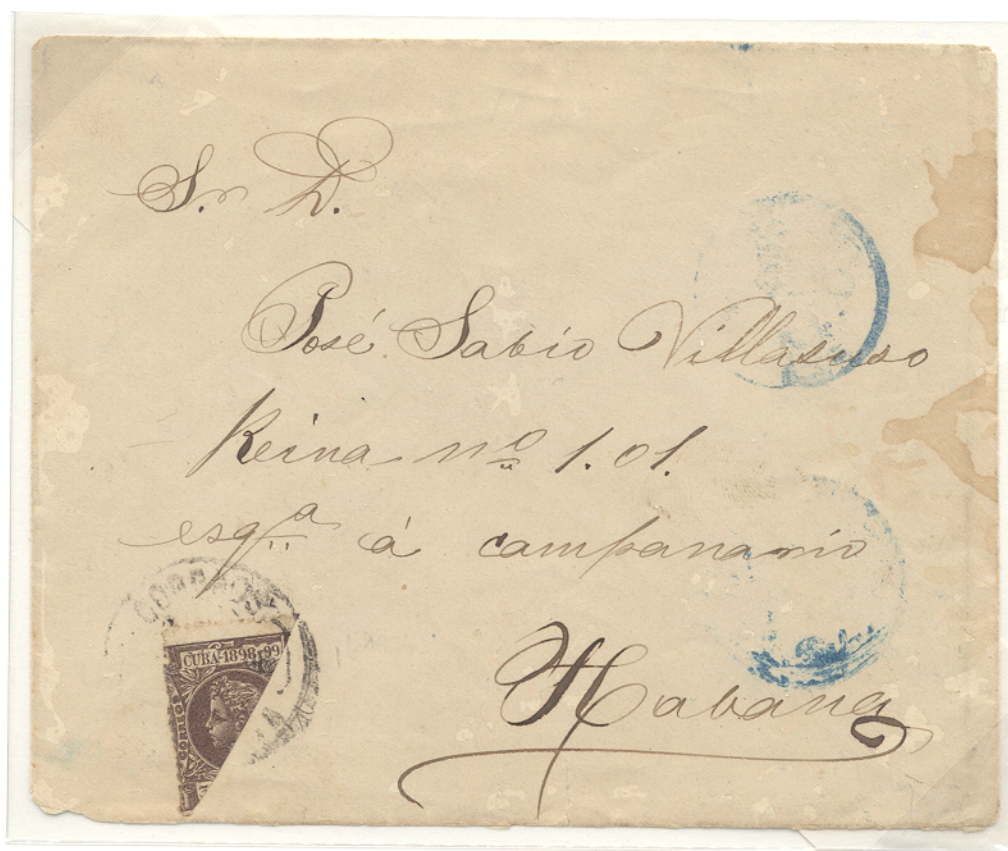 Sr. D.
José Sabio Villasuso
Reina nº 1.01.
esqª á campanario
Habana
CUBA-1898 Y 99
CORREOS